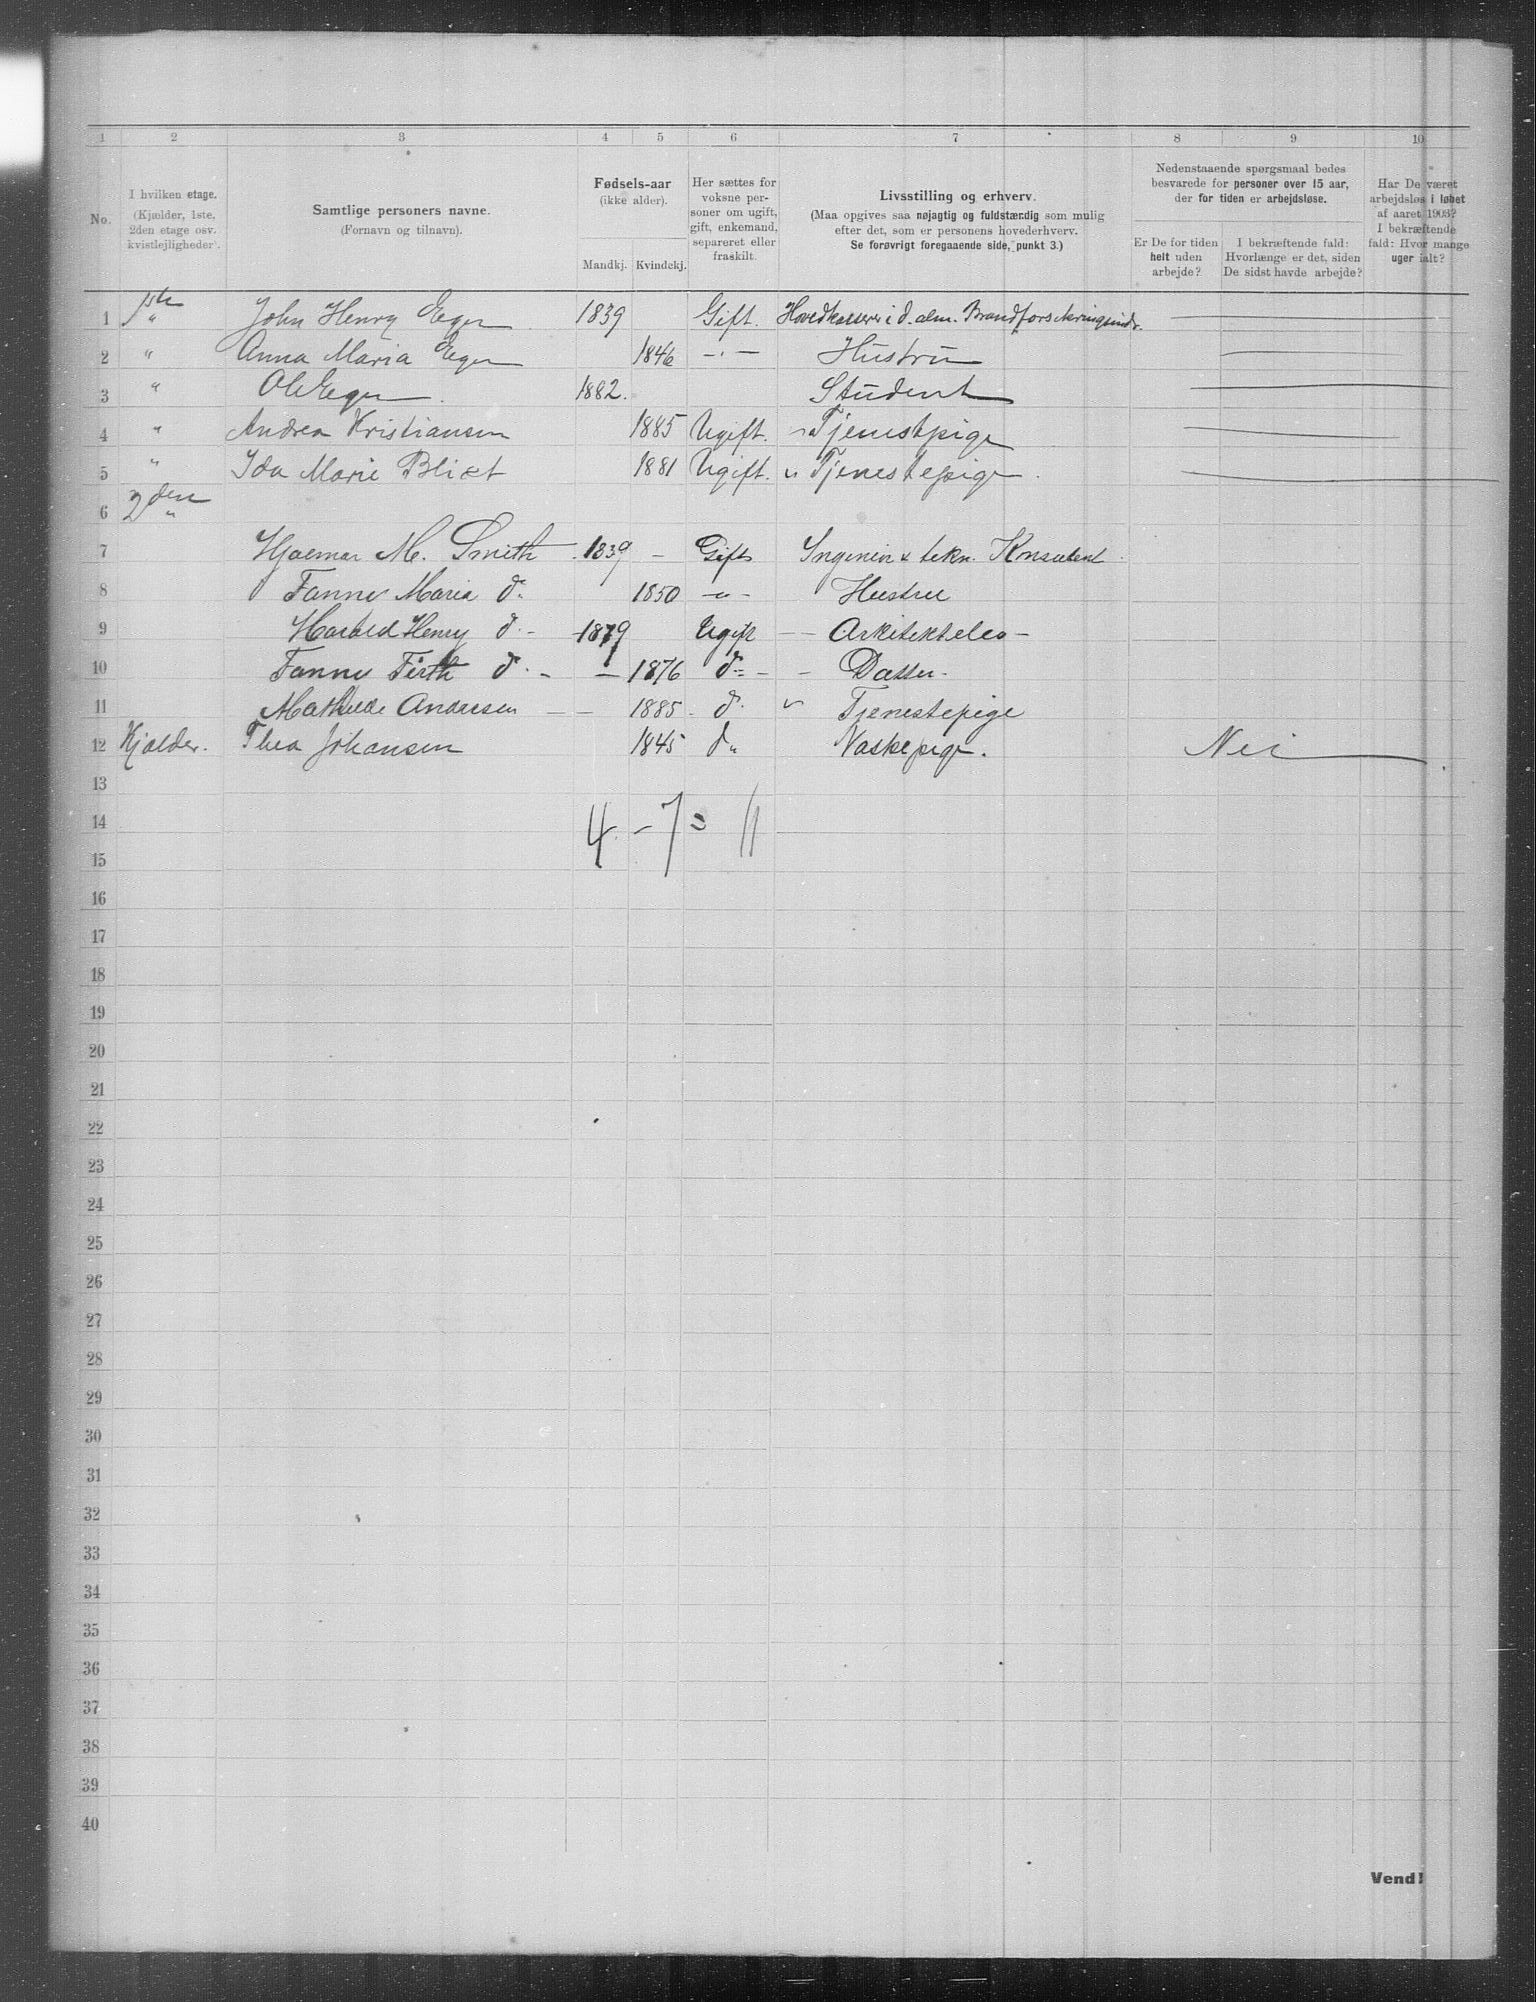 1 2 3 4 5 6 7 8 9 10
No.
I hvilken etage.
(Kjælder, 1ste, 2den etage osv. kvistlejligheder).
Samtlige personers navne.
(Fornavn og tilnavn).
Fødsels-aar
(ikke alder).
Mandkj. Kvindekj.
Her sættes for voksne personer om ugift, gift, enkemand, separeret eller fraskilt.
Livsstilling og erhverv.
(Maa opgives saa nøjagtig og fuldstændig som mulig
efter det, som er personens hovederhverv.
Se forøvrigt foregaaende side, punkt 3.)
Nedenstaaende spørgsmaal bedes
besvarede for personer over 15 aar,
der for tiden er arbejdsløse.
Er De for tiden helt uden arbejde?
I bekræftende fald: Hvorlænge er det, siden De sidst havde arbejde?
Har De været arbejdsløs i løbet af aaret 1903? I bekræftende fald: Hvor mange uger ialt?
1 1ste " John Henry Eger 1839 Gift. Hovedkasserer i d. alm. Brandforsikringsindr.
2 " Anna Maria Eger 1846 -"- Hustru
3 " Ole Eger 1882. Student
4 " Andrea Kristiansen 1885 Ugift. Tjenestpige
5 " Ida Marie Blixt 1881 Ugift. Tjenestepige
6 2den "
7 Hjalmar M. Smith 1839 - Gift Ingeniør & tekn. Konsulent
8 Fanny Maria do. 1850 -"- Hustru
9 Harald Henry do. - 1879 Ugift -- Arkitektelev -
10 Fanny Firth do. - - 1876 do - - Datter.
11 Mathilde Andresen -- 1885. do. Tjenestepige
12 Kjælder. Thea Johansen 1845 do Vaskepige. Nei
13
14 4 - 7 = 11
15
16
17
18
19
20
21
22
23
24
25
26
27
28
29
30
31
32
33
34
35
36
37
38
39
40
Vend!